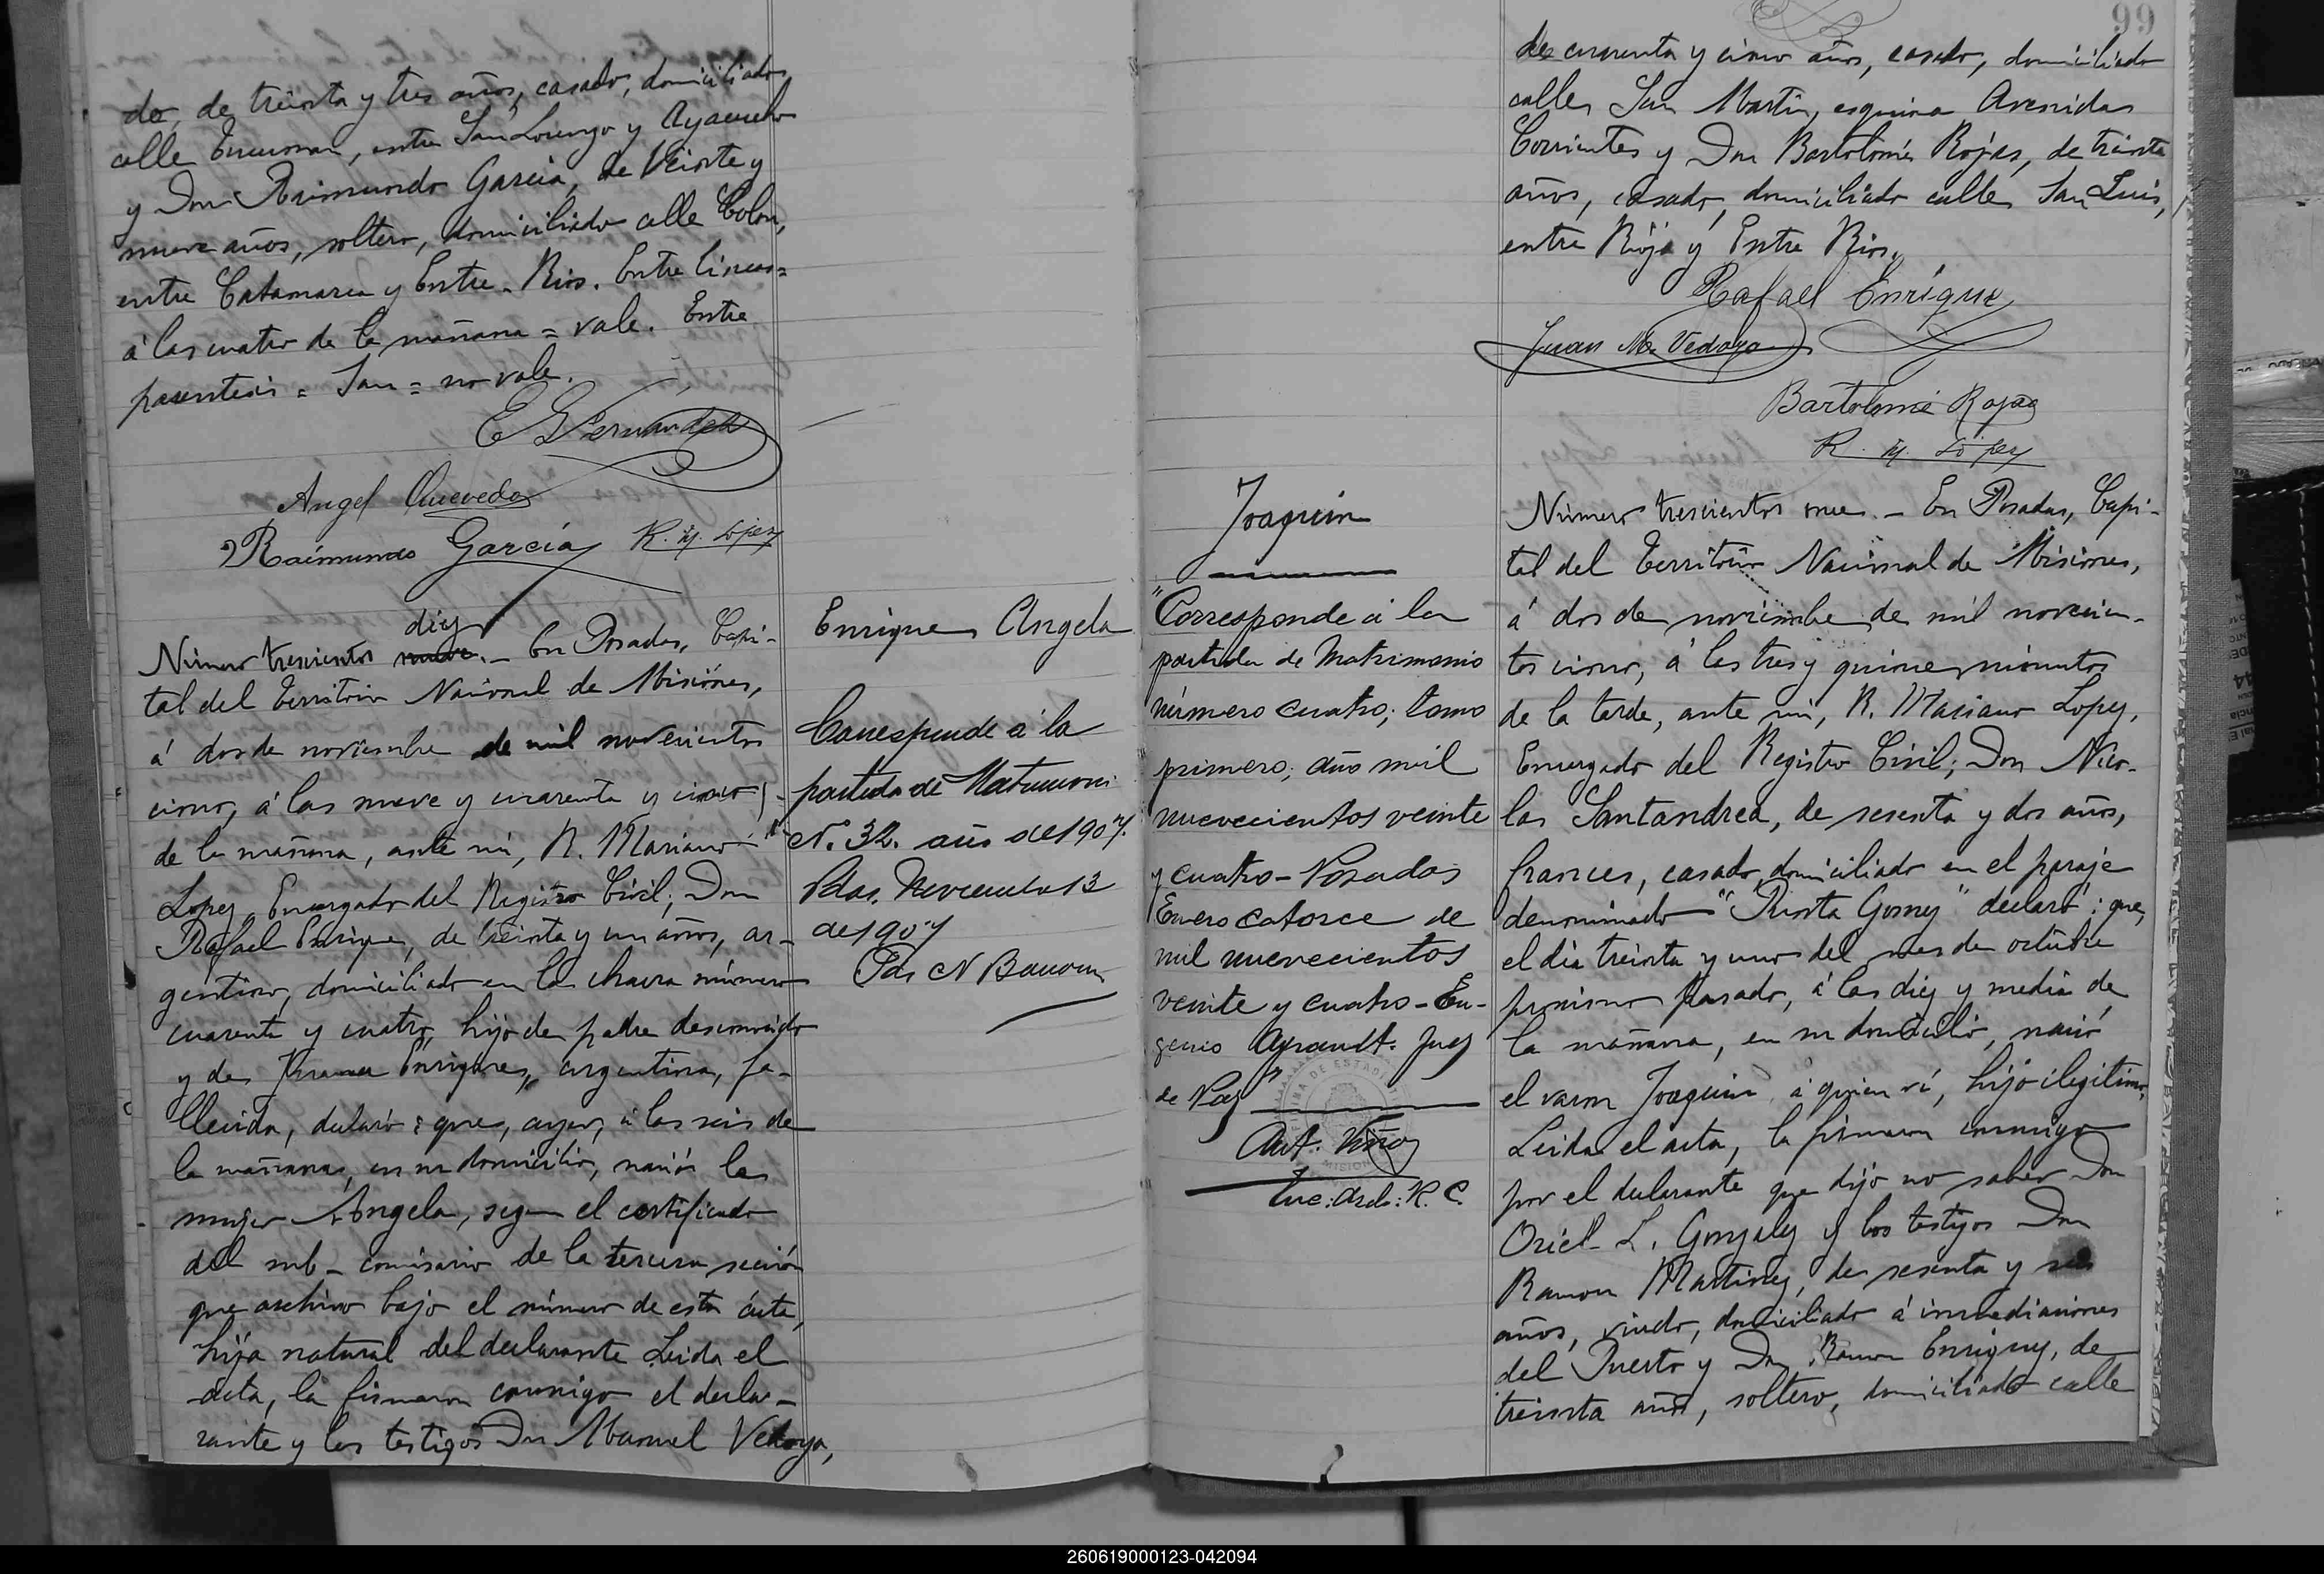 do, de treinta y tres años, casado, domiciliado
calle Tucuman, entre San Lorenzo y Ayacucho
y Don Raimundo Garcia, de Veinte y
nueve años, soltero, domiciliado calle Colon,
entre Catamarca y Entre-Rios. Entre lineas=
á las cuatro de la mañana = vale. Entre
parentesis = San = no vale.
Angel Quevedo
Raimundo García R. M. López
diez
Número trescientos nueve.- En Posadas, Capi-
tal del Territorio Nacional de Misiones,
á dos de noviembre de mil novecientos
cinco, á las nueve y cuarenta y cinco
de la mañana, ante mi, R. Mariano
Lopez, Encargado del Registro Civil; Don
Rafael Enrique, de treinta y un años, ar-
gentino, domiciliado en la chacra número
cuarenta y cuatro, hijo de padre desconocido
y de Enriques, argentina, fa-
llecida, declaró: que, ayer, á las seis de
la mañana, en su domicilio, nació la
mujer Angela, segun el certificado
del sub-comisario de la tercera sección
que archivo bajo el número de esta ácta,
hija natural del declarante. Leida el
acta, la firmaron conmigo el decla-
rante y los testigos Don Manuel Vedoya,
Enrique, Angela
Corresponde a la
partida de Matrimoni
N. 32. año de 1907.
Pdas. Noviembre 13
de 1907
99
de cuarenta y cinco años, casado, domiciliado
calle San Martin, esquina Avenida
Corrientes y Don Bartolomé Rojas, de treinta
años, casado, domiciliado calle San Luis,
entre Rioja y Entre Rios.
Rafael Enrique
Juan M. Vedoya
Bartolomé Rojas
R. M. López
Joaquin
"Corresponde á la
partida de Matrimonio
número cuatro; tomo
primero; año mil
nuevecientos veinte
y cuatro - Posadas
Enero catorce de
mil nuevecientos
veinte y cuatro - Eu-
genio Juez
de Paz"
Enc: Arch: R. C.
Número trescientos once.- En Posadas, Capi-
tal del Territorio Nacional de Misiones,
á dos de noviembre de mil novecien-
tos cinco, á las tres y quince minutos
de la tarde, ante mi, R. Mariano Lopez,
Encargado del Registro Civil; Don Nico-
las Santandrea, de sesenta y dos años,
frances, casado, domiciliado en el paraje
denominado "Punta Gomez" declaró: que,
el dia treinta y uno del mes de octubre
proximo pasado, á las diez y media de
la mañana, en su domicilio, nació
el varon Joaquin á quien ví, hijo ilegitimo.
Leida el acta, la firmaron conmigo
por el declarante que dijo no saber Don
Oriel L. Gonzalez y los testigos Don
Ramon Martinez, de sesenta y seis
años, viudo, domiciliado á inmediaciones
del Puerto y Don Ramon Enriquez, de
treinta años, soltero, domiciliado calle
260619000123-042094